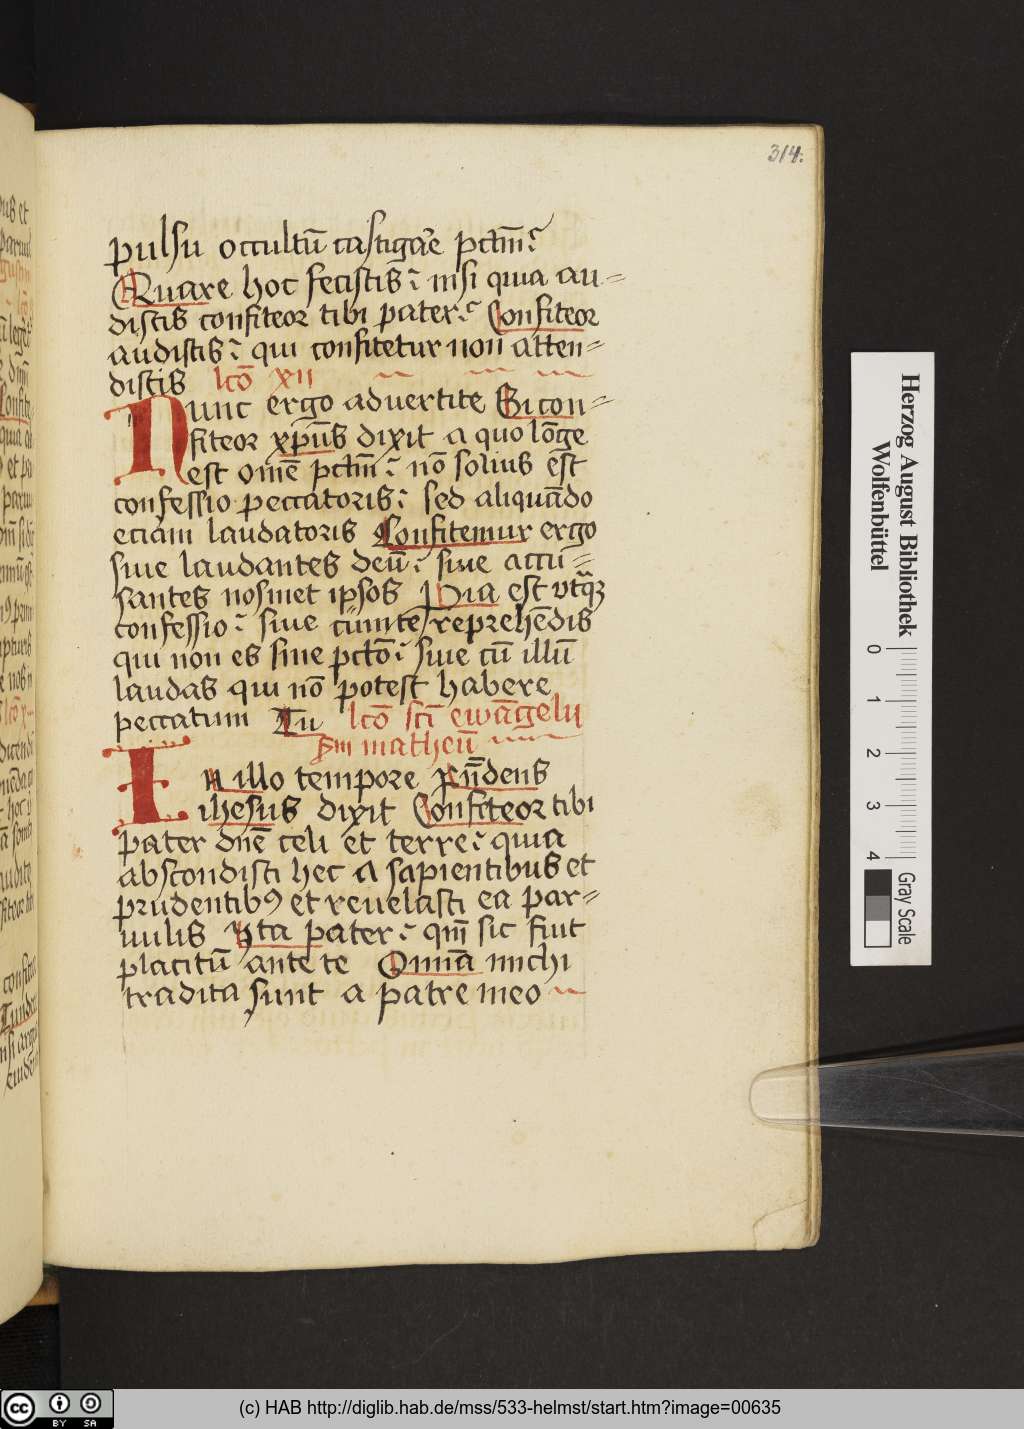 314.
pulsu occultū castigar̄e pctm̄.
Quare hoc fecistis: nisi quia au=
distis confiteor tibi pater: Confiteor
audistis: qui confitetur non atten=
distis lcō xii
Nunc ergo aduertite Si con=
fiteor xpūs dixit a quo lōge
est om̄e pctm̄: nō solius est
confessio peccatoris: sed aliquādo
eciam laudatoris Confitemur ergo
siue laudantes deū: siue accu=
santes nosmet ipsos Pia est vtq̄z
confessio: siue cum te reprehēdis
qui non es sine pctō: siue cū illū
laudas qui nō potest habere
peccatum Tu lcō scī ewāgelij
scdm matheū
In illo tempore Rn̄dens
ihesus dixit Confiteor tibi
pater dnē celi et terre: quia
abscondisti hec a sapientibus et
prudentibꝯ et reuelasti ea par=
uulis Yta pater: qm̄ sic fuit
placitū ante te Omīa michi
tradita sunt a patre meo
Herzog August Bibliothek
Wolfenbüttel
0 1 2 3 4
Gray Scale
(c) HAB http://diglib.hab.de/mss/533-helmst/start.htm?image=00635
CC BY SA